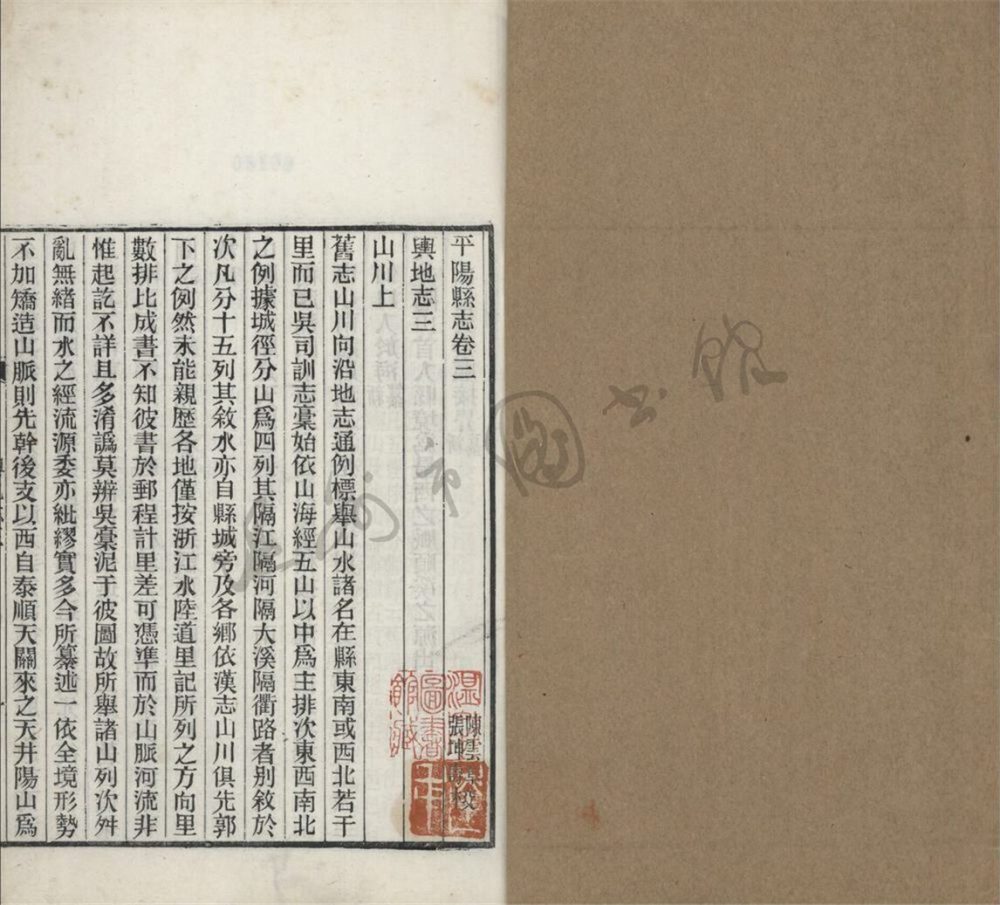 平陽縣志卷三
輿地志三
山川上
舊志山川向沿地志通例標舉山水諸名在縣東南或西北若干
里而已吳司訓志稾始依山海經五山以中爲主排次東西南北
之例據城徑分山爲四列其隔江隔河隔大溪隔衢路者別敘於
次凡分十五列其敘水亦自縣城旁及各鄉依漢志山川俱先郭
下之例然未能親歷各地僅按浙江水陸道里記所列之方向里
數排比成書不知彼書於郵程計里差可憑準而於山脈河流非
惟起訖不詳且多淆譌莫辨吳稾泥于彼圖故所舉諸山列次舛
亂無緒而水之經流源委亦紕繆實多今所纂述一依全境形勢
不加矯造山脈則先幹後支以西自泰順天關來之天井陽山爲
陳雲
張坤 校
溫
圖書
館藏
市圖書館